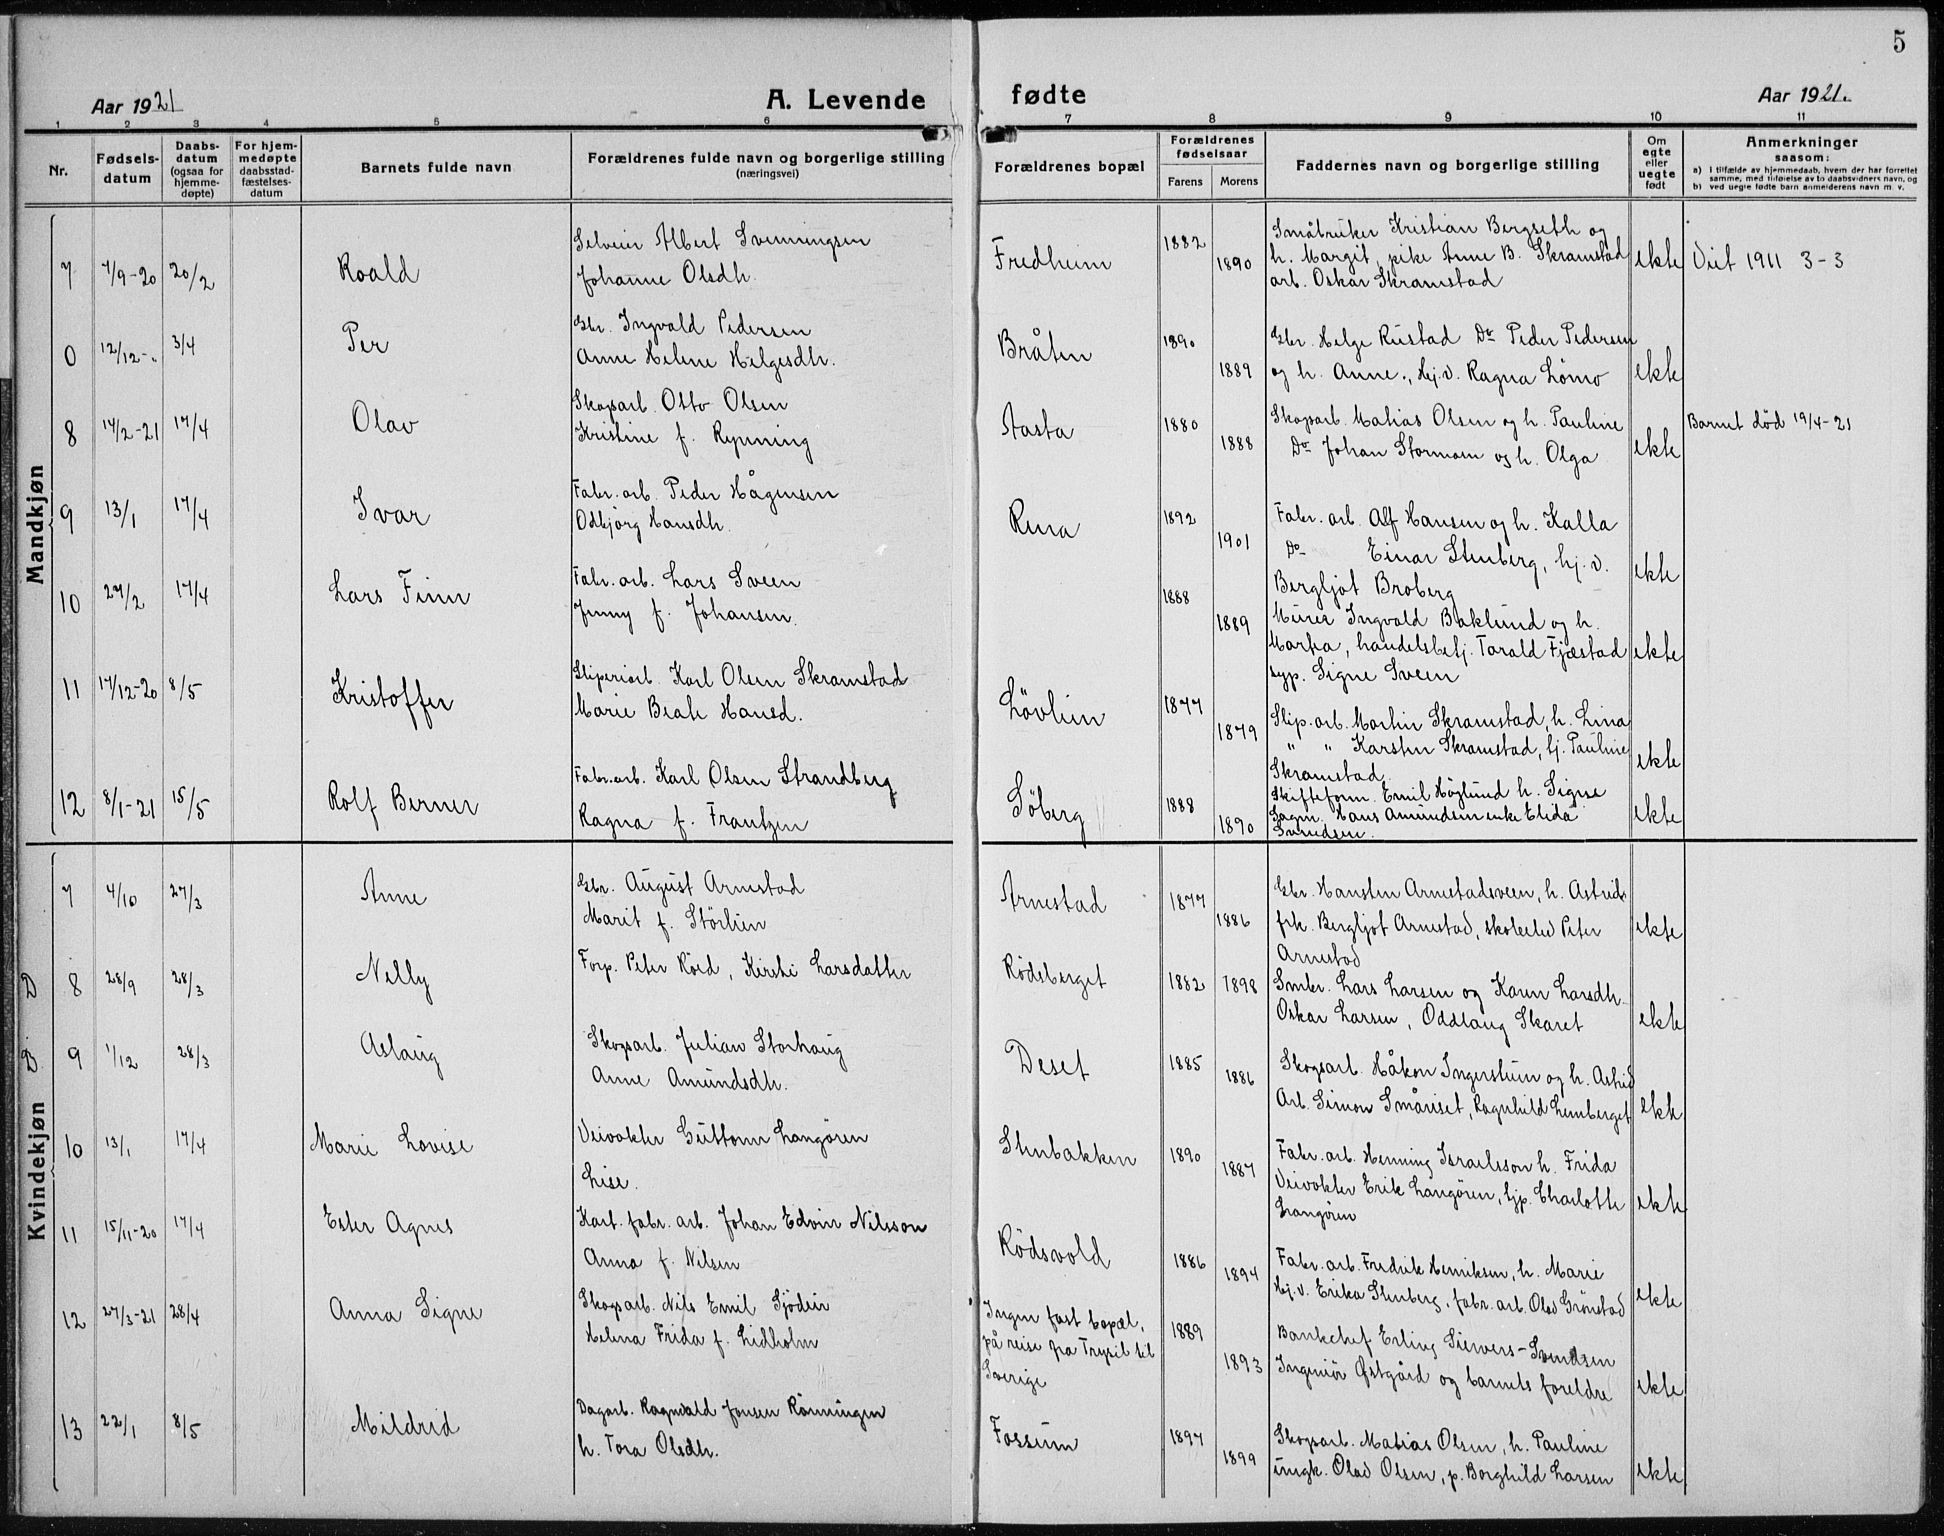 5
Aar 1921
A. Levende
fødte
Aar 1921.
1 2 3 4 5 6 7 8 9 10 11
Nr.
Fødsels-
datum
Daabs-
datum
(ogsaa for
hjemme-
døpte)
For hjem-
medøpte
daabsstad-
fæstelses-
datum
Barnets fulde navn
Forældrenes fulde navn og borgerlige stilling
(næringsvei)
Forældrenes bopæl
Forældrenes
fødselsaar
Farens Morens
Faddernes navn og borgerlige stilling
Om
egte
eller
uegte
født
Anmerkninger
saasom:
a) i tilfælde av hjemmedaab, hvem der har forrettet
samme, med tilføielse av to daabsvidners navn, og
b) ved uegte fødte barn anmelderens navn m. v.
Mandkjøn
7 7/9-20 20/2 Roald
Selveier Albert Svenningsen
Johanne Olsdh.
Fredheim 1882 1890
Småbruker Kristian Bergseth og
h. Margit, pike Anne B. Skramstad
arb. Oskar Skramstad
ekte Viet 1911 3-3
0 12/12-" 3/4 Per
Gbr. Ingvald Pedersen
Anne Helene Helgesdh.
Bråten 1890 1889
Gbr. Helge Rustad Do Peder Pedersen
og h. Anne, hj.v. Ragna Lømo
ekte
8 14/2-21 17/4 Olav
Skogsarb. Otto Olsen
Kristine f. Rynning
Aasta 1880 1888
Skogsarb. Matias Olsen og h. Pauline
Do Johan Stormoen og h. Olga
ekte Barnet død 19/4-21
9 13/1 17/4 Ivar
Fabr. arb. Peder Hågensen
Odbjörg Hansdh.
Rena 1892 1901
Fabr. arb. Alf Hansen og h. Kalla
Do Einar Stenberg, hj.v.
Bergljot Broberg
ekte
10 27/2 17/4 Lars Finn
Fabr. arb. Lars Sveen
Jenny f. Johansen.
1888 1889
Murer Ingvald Baklund og h.
Marta, handelsbetj. Torald Fjæstad
syp. Signe Sveen
ekte
11 17/12-20 8/5 Kristoffer
Sliperiarb. Karl Olsen Skramstad
Marie Beate Hansd.
Lövlien 1877 1879
Slip. arb. Martin Skramstad, h. Lina
" " Karsten Skramstad, hj. Pauline
Skramstad
ekte
12 8/1-21 15/5 Rolf Berner
Fabr. arb. Karl Olsen Strandberg
Ragna f. Frantzen
Söberg 1888 1890
Skifteform. Emil Höglund h. Signe
Sagm. Hans Amundsen enke Elida
Svendsen.
ekte
Kvindekjøn
7 4/10 27/3 Anne
Gbr. August Arnestad
Marit f. Störlien
Arnestad 1877 1886
Gbr. Hansten Arnestadsveen, h. Astrid
frk. Bergljot Arnestad, skoleelev Peter
Arnestad
ekte
D 8 28/9 28/3 Nelly
Forp. Peter Röed, Kirsti Larsdatter
Rödsberget 1882 1898
Smbr. Lars Larsen og Karen Larsdh.
Oskar Larsen, Oddlaug Skaret
ekte
D. 9 1/12 28/3 Aslaug
Skogsarb. Julian Storhaug
Anne Amundsdh.
Deset 1885 1886
Skogsarb. Håkon Ingersheim og h. Astrid
Arb. Simon Småriset, Ragnhild Lemberget
ekte
10 13/1 17/4 Marie Lovise
Veivokter Guttorm Langören
Lise.
Stenbakken 1890 1887
Fabr. arb. Henning Israelsson h. Frida
Veivokter Erik Langören, hjp. Charlotte
Langören
ekte
11 15/11-20 17/4 Ester Agnes
Kart. fabr. arb. Johan Edvin Nilsson
Anna f. Nilsen
Rödsvold 1886 1894
Fabr. arb. Fredrik Henriksen, h. Marie
hj.v. Erika Stenberg, fabr. arb. Olav Grönstad
ekte
12 27/3-21 28/4 Anna Signe
Skogsarb. Nils Emil Sjödin
Helena Frida f. Lidholm
Ingen fast bopæl,
på reise fra Trysil til
Sverige
1889 1893
Bankchef Erling Sievers-Svendsen
Ingeniör Østgård og barnets foreldre
ekte
13 22/1 8/5 Mildrid
Dagarb. Ragnvald Jensen Rönningen
h. Tora Olsdh.
Fossum 1897 1899
Skogsarb. Matias Olsen, h. Pauline
ungk. Olav Olsen, p. Borghild Larsen
ekte